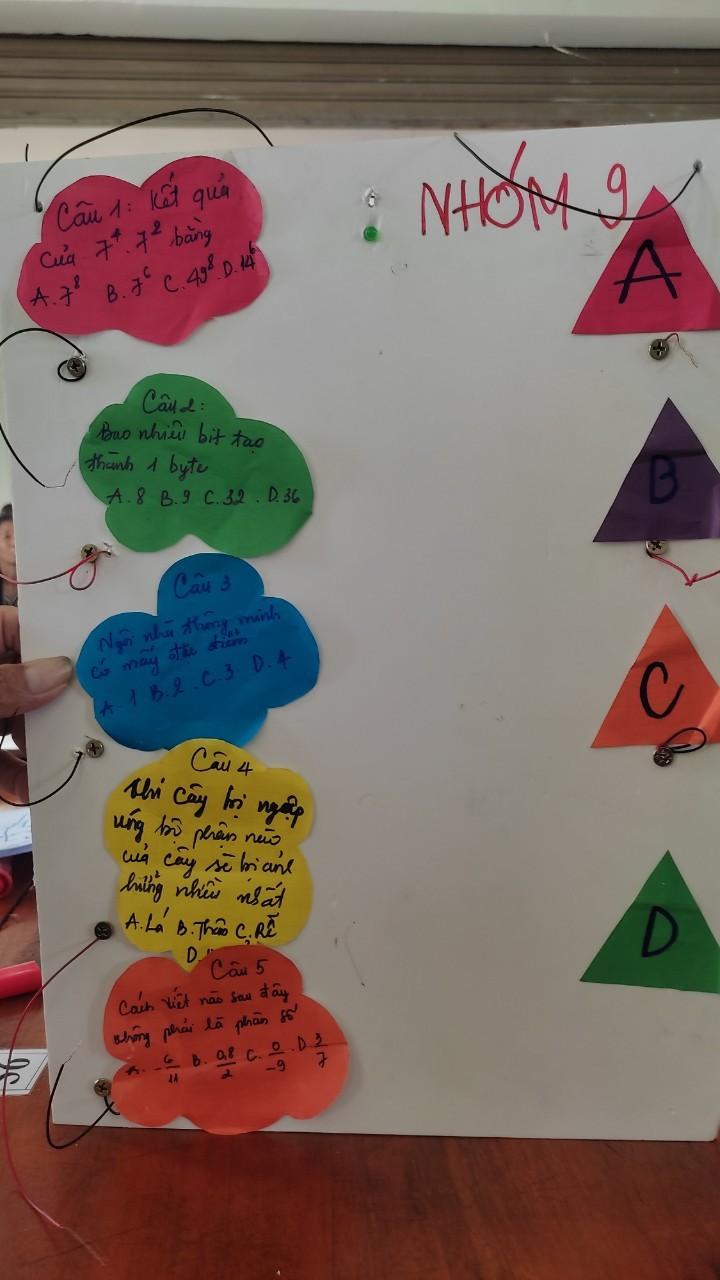 NHÓM 9
Câu 1: Kết quả
của 7⁴. 7² bằng
A. 7⁸ B. 7⁶ C. 49⁸. D. 14⁶
Câu 2:
Bao nhiêu bit tạo
thành 1 byte
A. 8 B. 9 C. 32. D. 36
Câu 3
Ngôi nhà thông minh
có mấy đặc điểm
A. 1 B. 2. C. 3 D. 4
Câu 4
Khi cây bị ngập
úng bộ phận nào
của cây sẽ bị ảnh
hưởng nhiều nhất
A. Lá B. Thân C. Rễ
D.
Câu 5
Cách viết nào sau đây
không phải là phân số
A. -6/11 B. 0,8/2 C. 0/-9. D 3/7
A
B
C
D